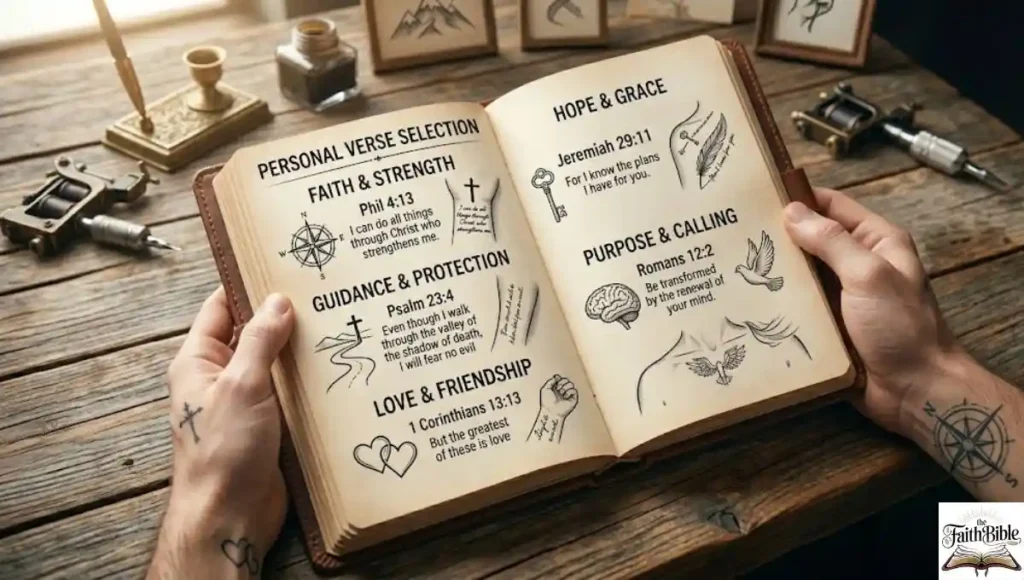 PERSONAL VERSE SELECTION
FAITH & STRENGTH
Phil 4:13
I can do all things
through Christ who
strengthens me.
W
E
S
I can do all
things through
Christ who
strengthens me.
GUIDANCE & PROTECTION
Psalm 23:4
Even though I walk
through the valley of
the shadow of death,
I will fear no evil
LOVE & FRIENDSHIP
1 Corinthians 13:13
But the greatest
of these is love
HOPE & GRACE
Jeremiah 29:11
For I know the plans
I have for you.
PURPOSE & CALLING
Romans 12:2
Be transformed
by the renewal of
your mind.
N
S
the
Faith Bible